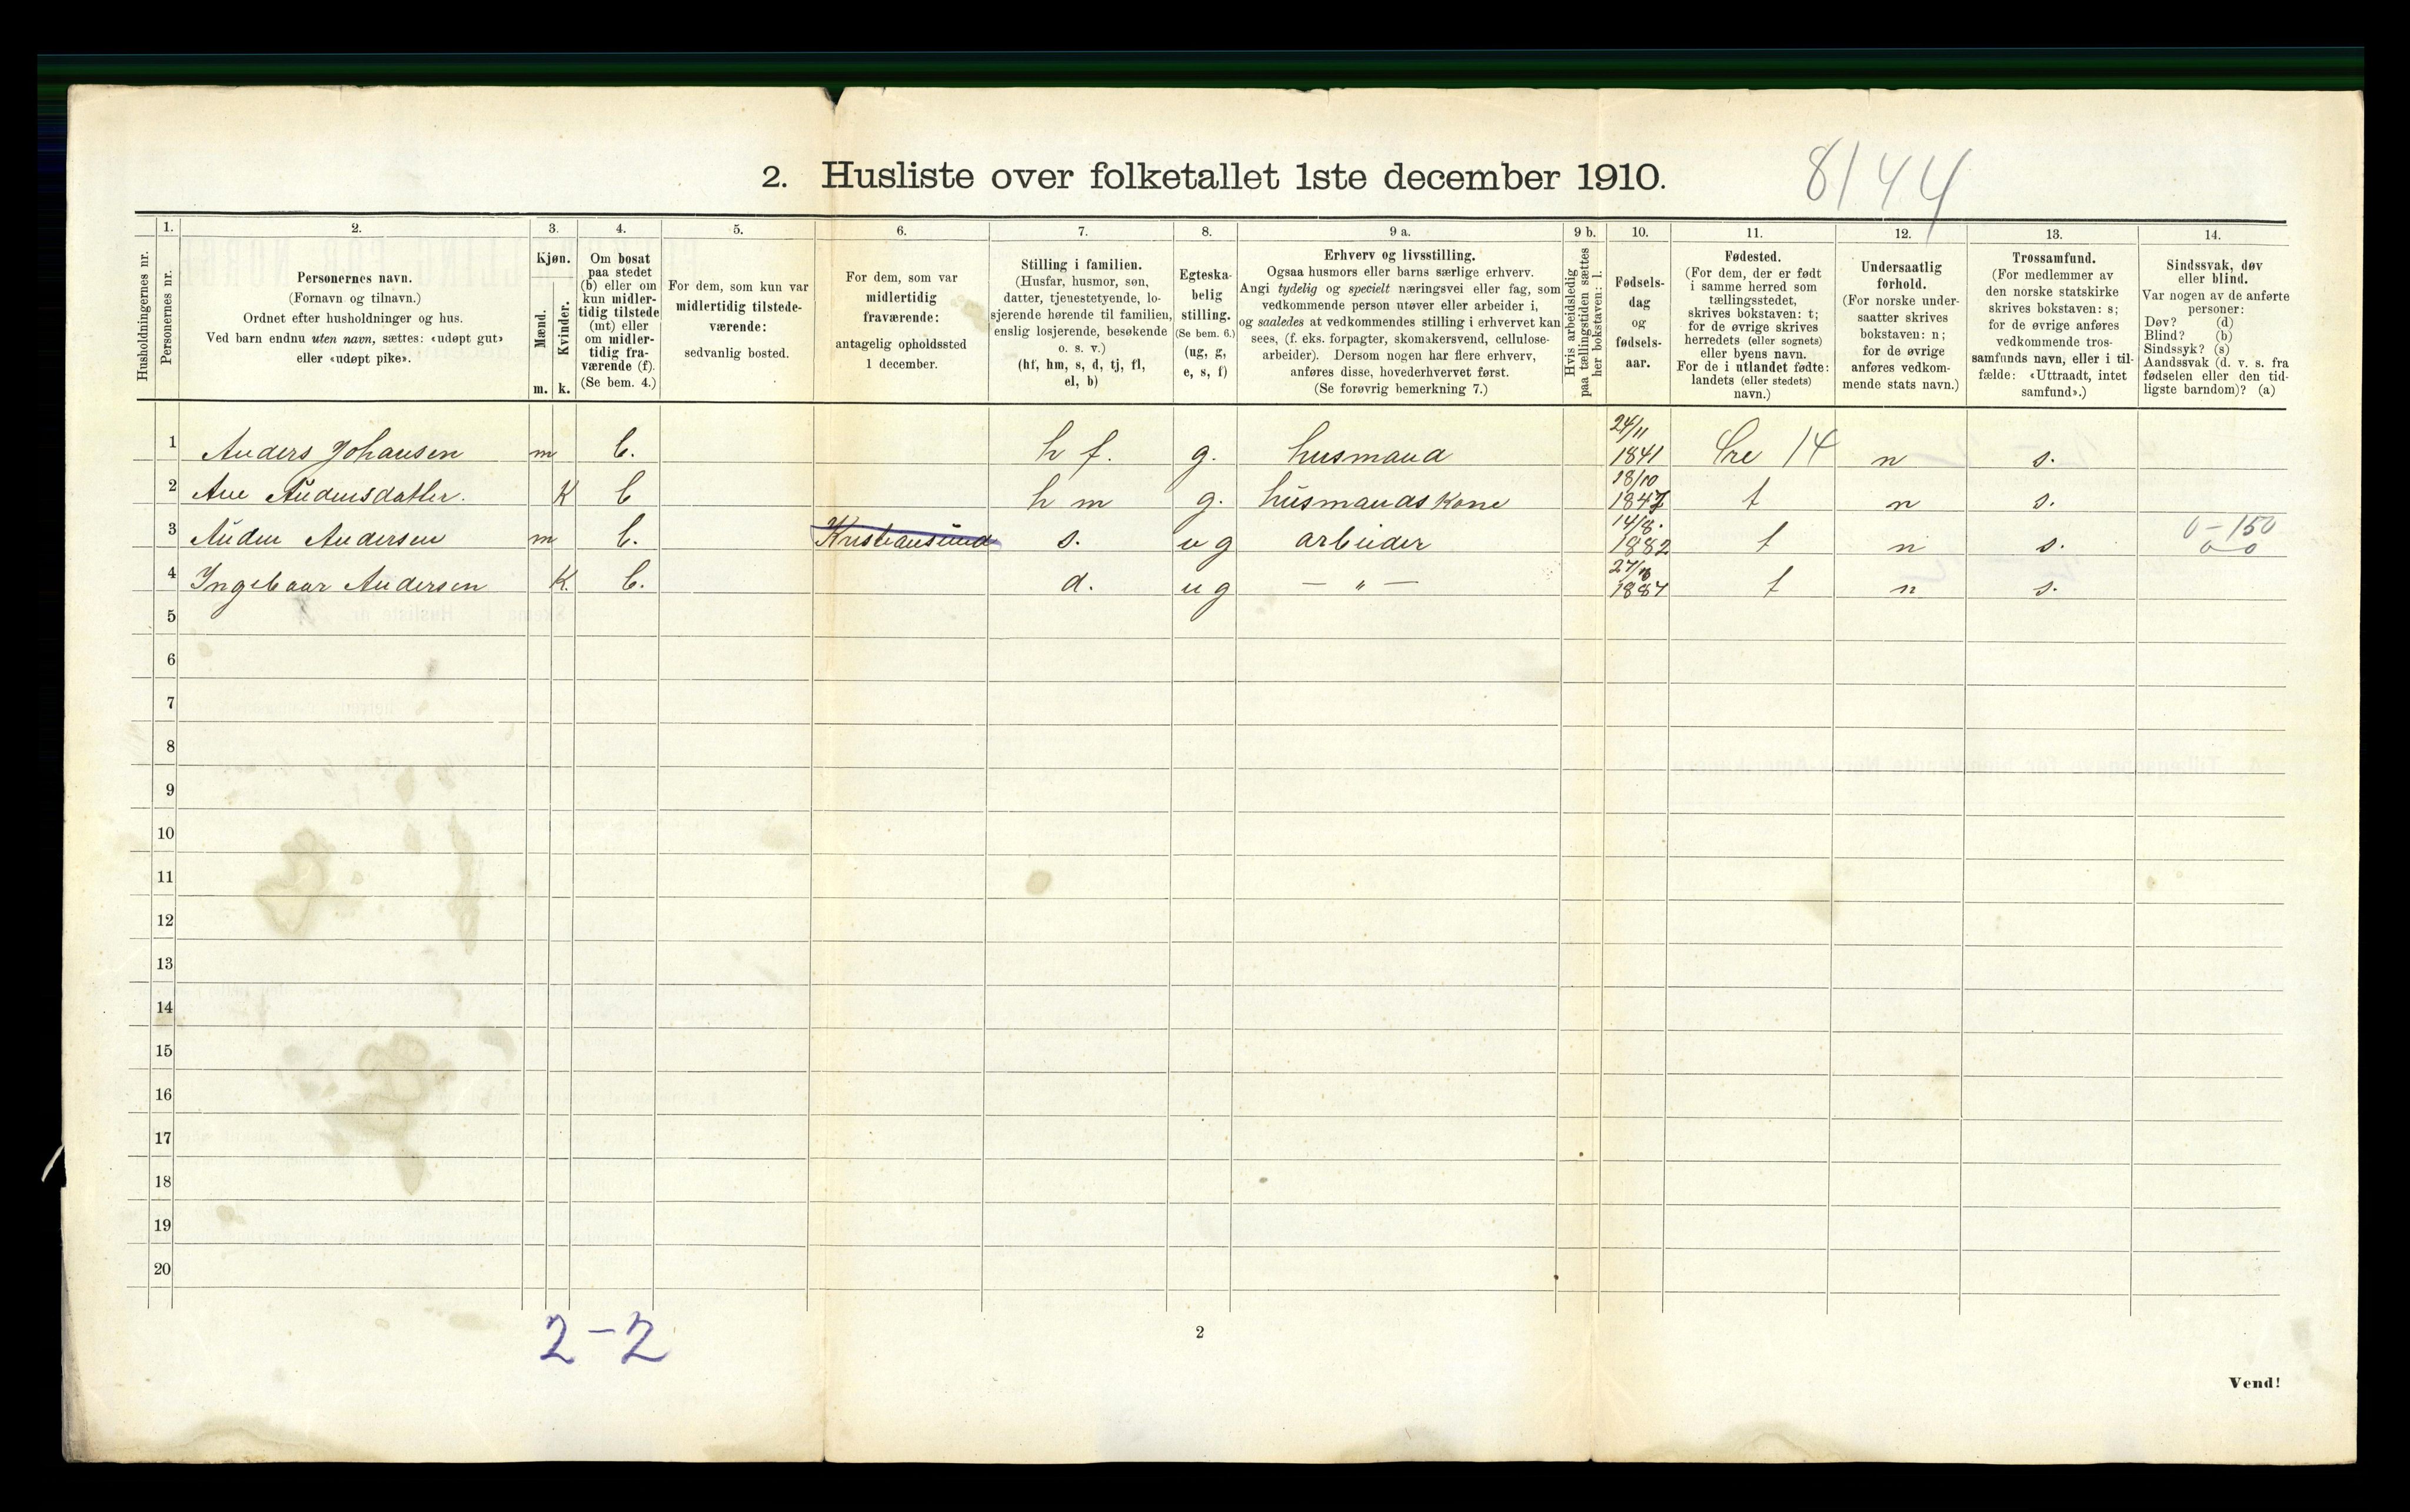 2. Husliste over folketallet 1ste december 1910.
8144
Husholdningernes nr.
1.
Personernes nr.
2.
Personernes navn.
(Fornavn og tilnavn.)
Ordnet efter husholdninger og hus.
Ved barn endnu uten navn, sættes: «udøpt gut»
eller «udøpt pike».
3.
Kjøn.
Mænd.
m.
Kvinder.
k.
4.
Om bosat
paa stedet
(b) eller om
kun midler-
tidig tilstede
(mt) eller
om midler-
tidig fra-
værende (f).
(Se bem. 4.)
5.
For dem, som kun var
midlertidig tilstede-
værende:
sedvanlig bosted.
6.
For dem, som var
midlertidig
fraværende:
antagelig opholdssted
1 december.
7.
Stilling i familien.
(Husfar, husmor, søn,
datter, tjenestetyende, lo-
sjerende hørende til familien,
enslig losjerende, besøkende
o. s. v.)
(hf, hm, s, d, tj, fl,
el, b)
8.
Egteska-
belig
stilling.
(Se bem. 6.)
(ug, g,
e, s, f)
9 a.
Erhverv og livsstilling.
Ogsaa husmors eller barns særlige erhverv.
Angi tydelig og specielt næringsvei eller fag, som
vedkommende person utøver eller arbeider i,
og saaledes at vedkommendes stilling i erhvervet kan
sees, (f. eks. forpagter, skomakersvend, cellulose-
arbeider). Dersom nogen har flere erhverv,
anføres disse, hovederhvervet først.
(Se forøvrig bemerkning 7.)
9 b.
Hvis arbeidsledig
paa tællingstiden sættes
her bokstaven: l.
10.
Fødsels-
dag
og
fødsels-
aar.
11.
Fødested.
(For dem, der er født
i samme herred som
tællingsstedet,
skrives bokstaven: t;
for de øvrige skrives
herredets (eller sognets)
eller byens navn.
For de i utlandet fødte:
landets (eller stedets)
navn.)
12.
Undersaatlig
forhold.
(For norske under-
saatter skrives
bokstaven: n;
for de øvrige
anføres vedkom-
mende stats navn.)
13.
Trossamfund.
(For medlemmer av
den norske statskirke
skrives bokstaven: s;
for de øvrige anføres
vedkommende tros-
samfunds navn, eller i til-
fælde: «Uttraadt, intet
samfund».)
14.
Sindssvak, døv
eller blind.
Var nogen av de anførte
personer:
Døv? (d)
Blind? (b)
Sindssyk? (s)
Aandssvak (d. v. s. fra
fødselen eller den tid-
ligste barndom)? (a)
1 Anders Johansen m b. h f. g. husmand 24/11 1841 14 n s.
2 Ane Andersdatter. K b h m g. husmandskone 18/10 1847 t n s.
3 Anders Andersen m b. Kristiansund s. u g arbeider 14/8. 1882 t n s. 0-150 0 0
4 Ingebaar Andersen K. b. d. u g — „ — 1887 t n s.
5
6
7
8
9
10
11
12
13
14
15
16
17
18
19
20
2-2
2
Vend!